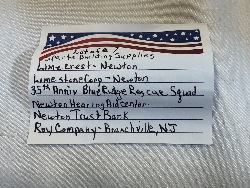 Lafose /
Sparta Building Supplies
Lime Crest - Newton
Limestone Corp - Newton
35th Anniv Blue Ridge Rescue Squad
Newton Hearing Aid Center
Newton Trust Bank
Roy Company - Branchville, NJ